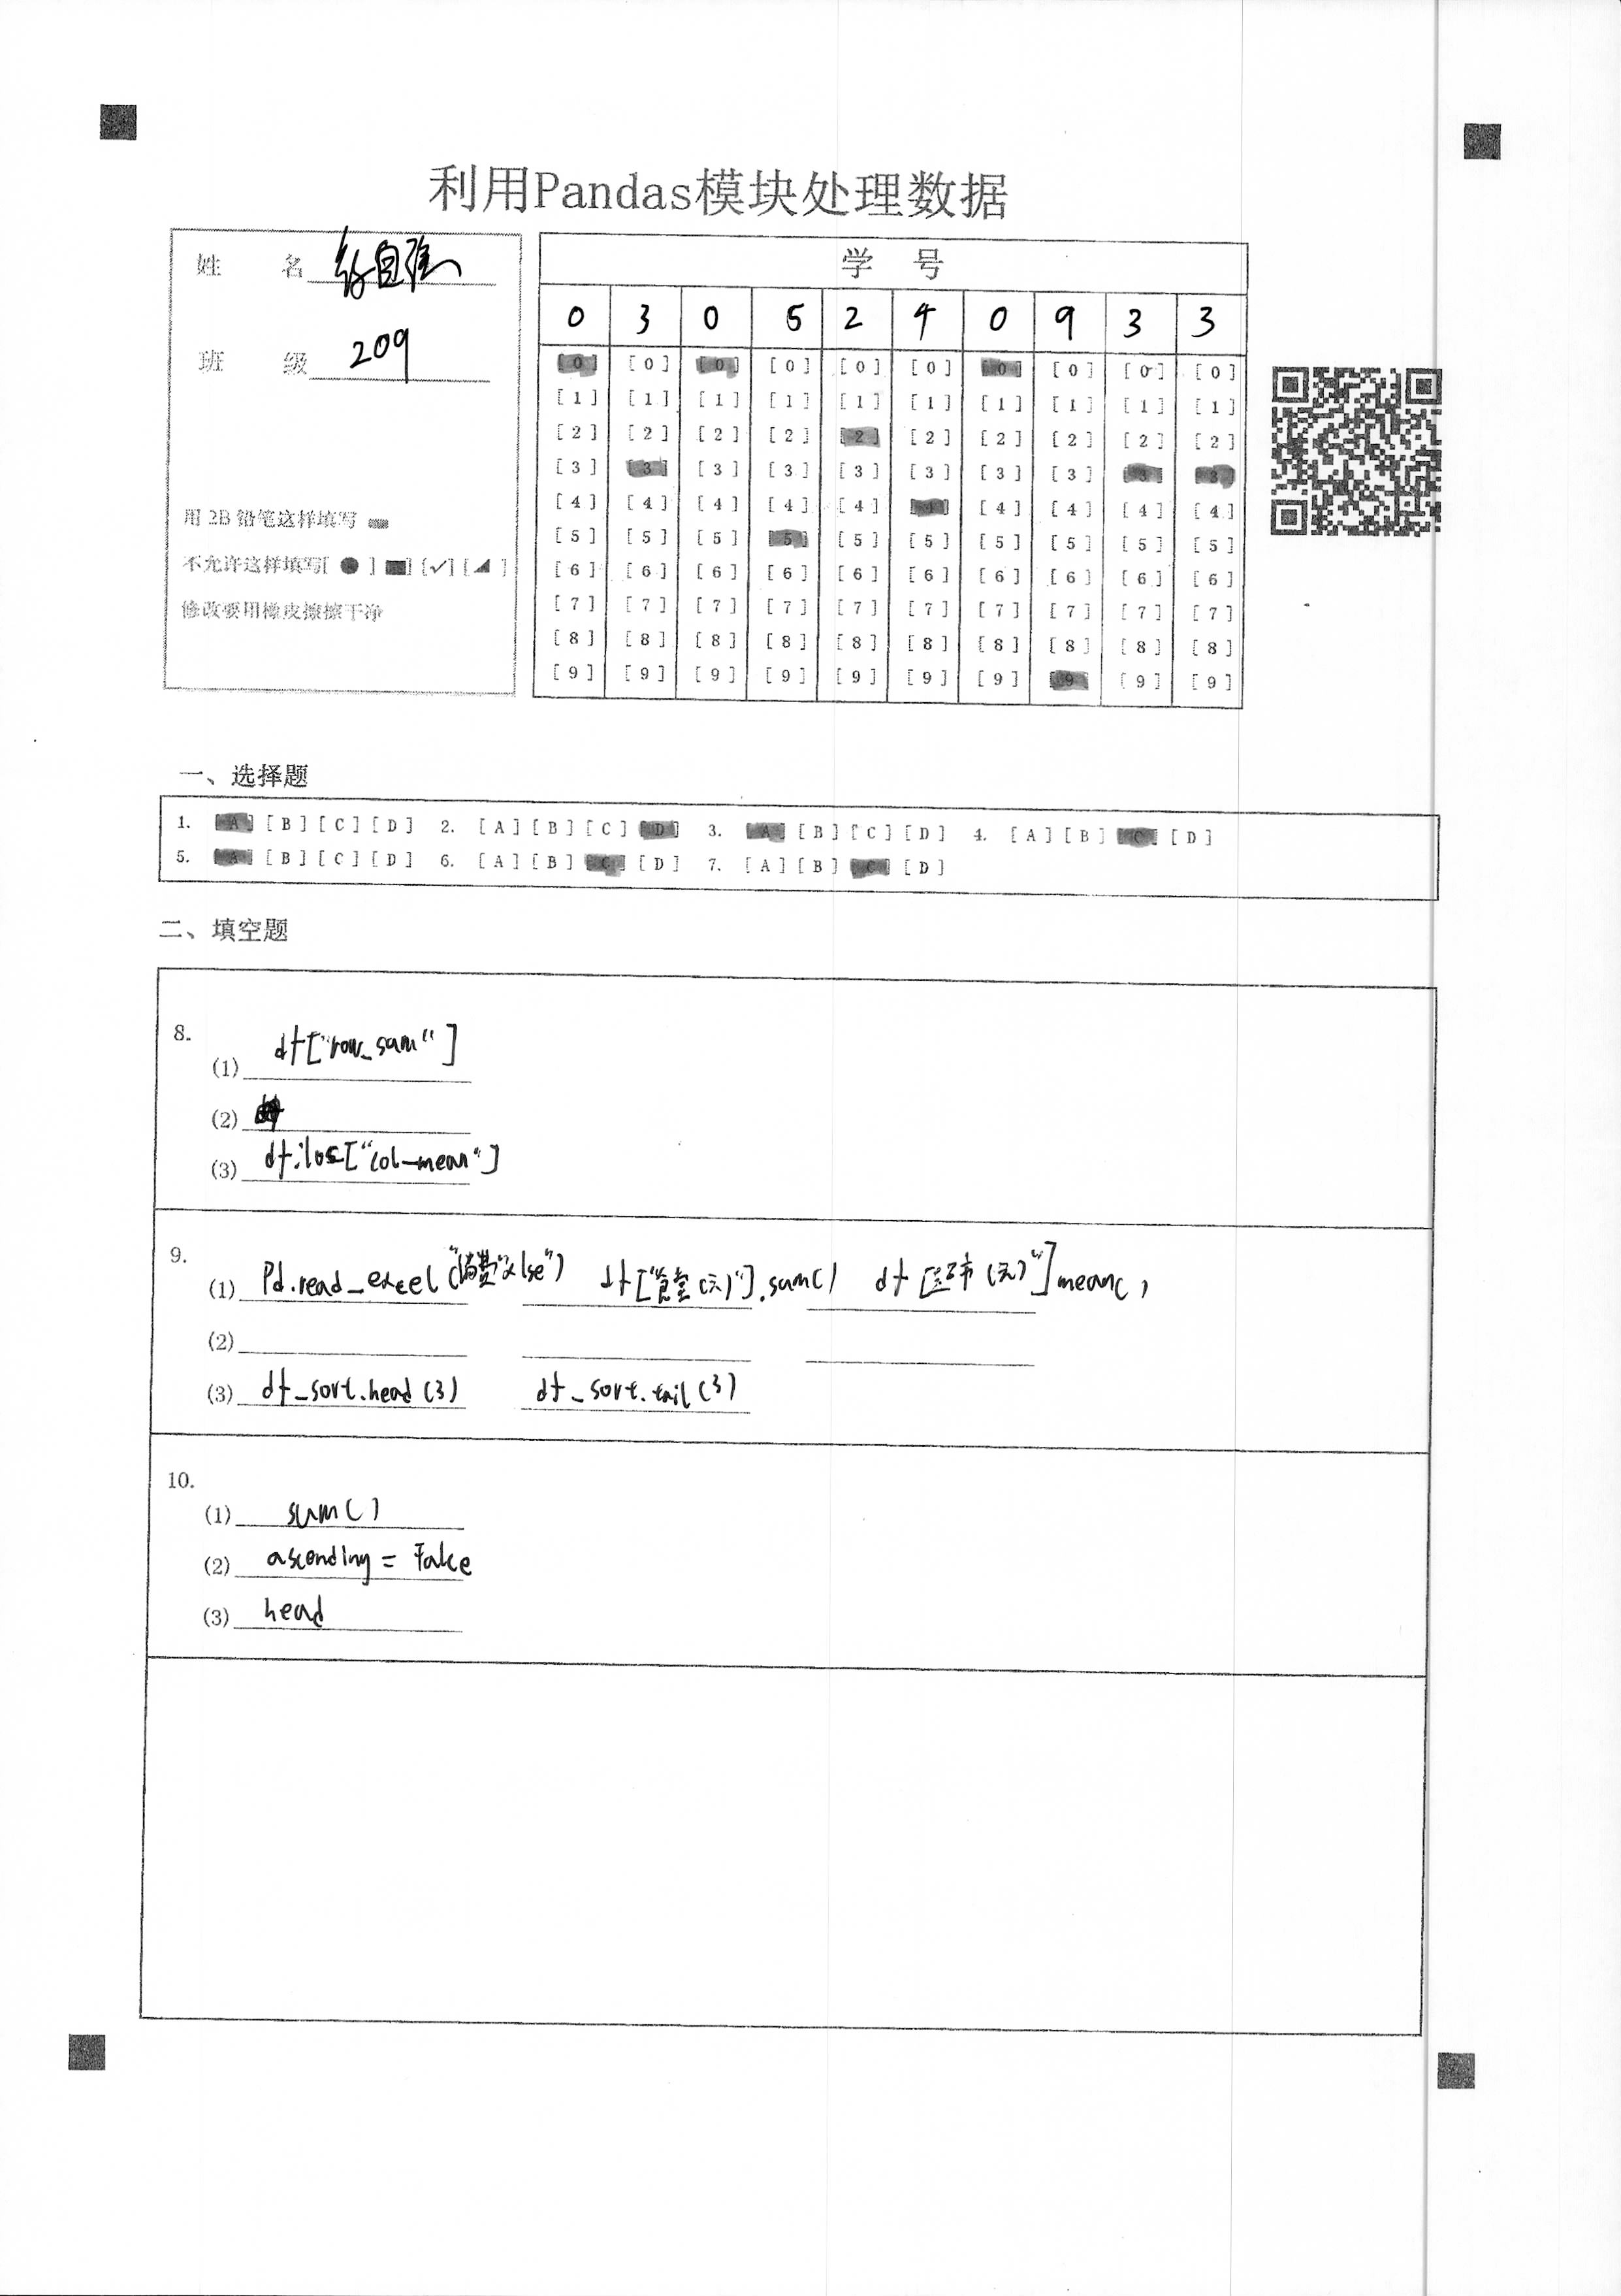 利用Pandas模块处理数据
姓 名
班 级 209
用 2B 铅笔这样填写
不允许这样填写[ ● ] [✓] [ ]
修改要用橡皮擦擦干净
学 号
0 3 0 5 2 4 0 9 3 3
[0] [0] [0] [0] [0] [0] [0] [0] [0] [0]
[1] [1] [1] [1] [1] [1] [1] [1] [1] [1]
[2] [2] [2] [2] [2] [2] [2] [2] [2] [2]
[3] [3] [3] [3] [3] [3] [3] [3] [3] [3]
[4] [4] [4] [4] [4] [4] [4] [4] [4] [4]
[5] [5] [5] [5] [5] [5] [5] [5] [5] [5]
[6] [6] [6] [6] [6] [6] [6] [6] [6] [6]
[7] [7] [7] [7] [7] [7] [7] [7] [7] [7]
[8] [8] [8] [8] [8] [8] [8] [8] [8] [8]
[9] [9] [9] [9] [9] [9] [9] [9] [9] [9]
一、选择题
1. [A] [B] [C] [D] 2. [A] [B] [C] [D] 3. [A] [B] [C] [D] 4. [A] [B] [C] [D]
5. [A] [B] [C] [D] 6. [A] [B] [C] [D] 7. [A] [B] [C] [D]
二、填空题
8.
(1) df["row_sum"]
(2)
(3) df.loc["col_mean"]
9.
(1) Pd.read_excel("消费"xlse") df["食堂(元)"].sum() df[超市(元)"]mean()
(2)
(3) df_sort.head(3) df_sort.tail(3)
10.
(1) sum()
(2) ascending = False
(3) head